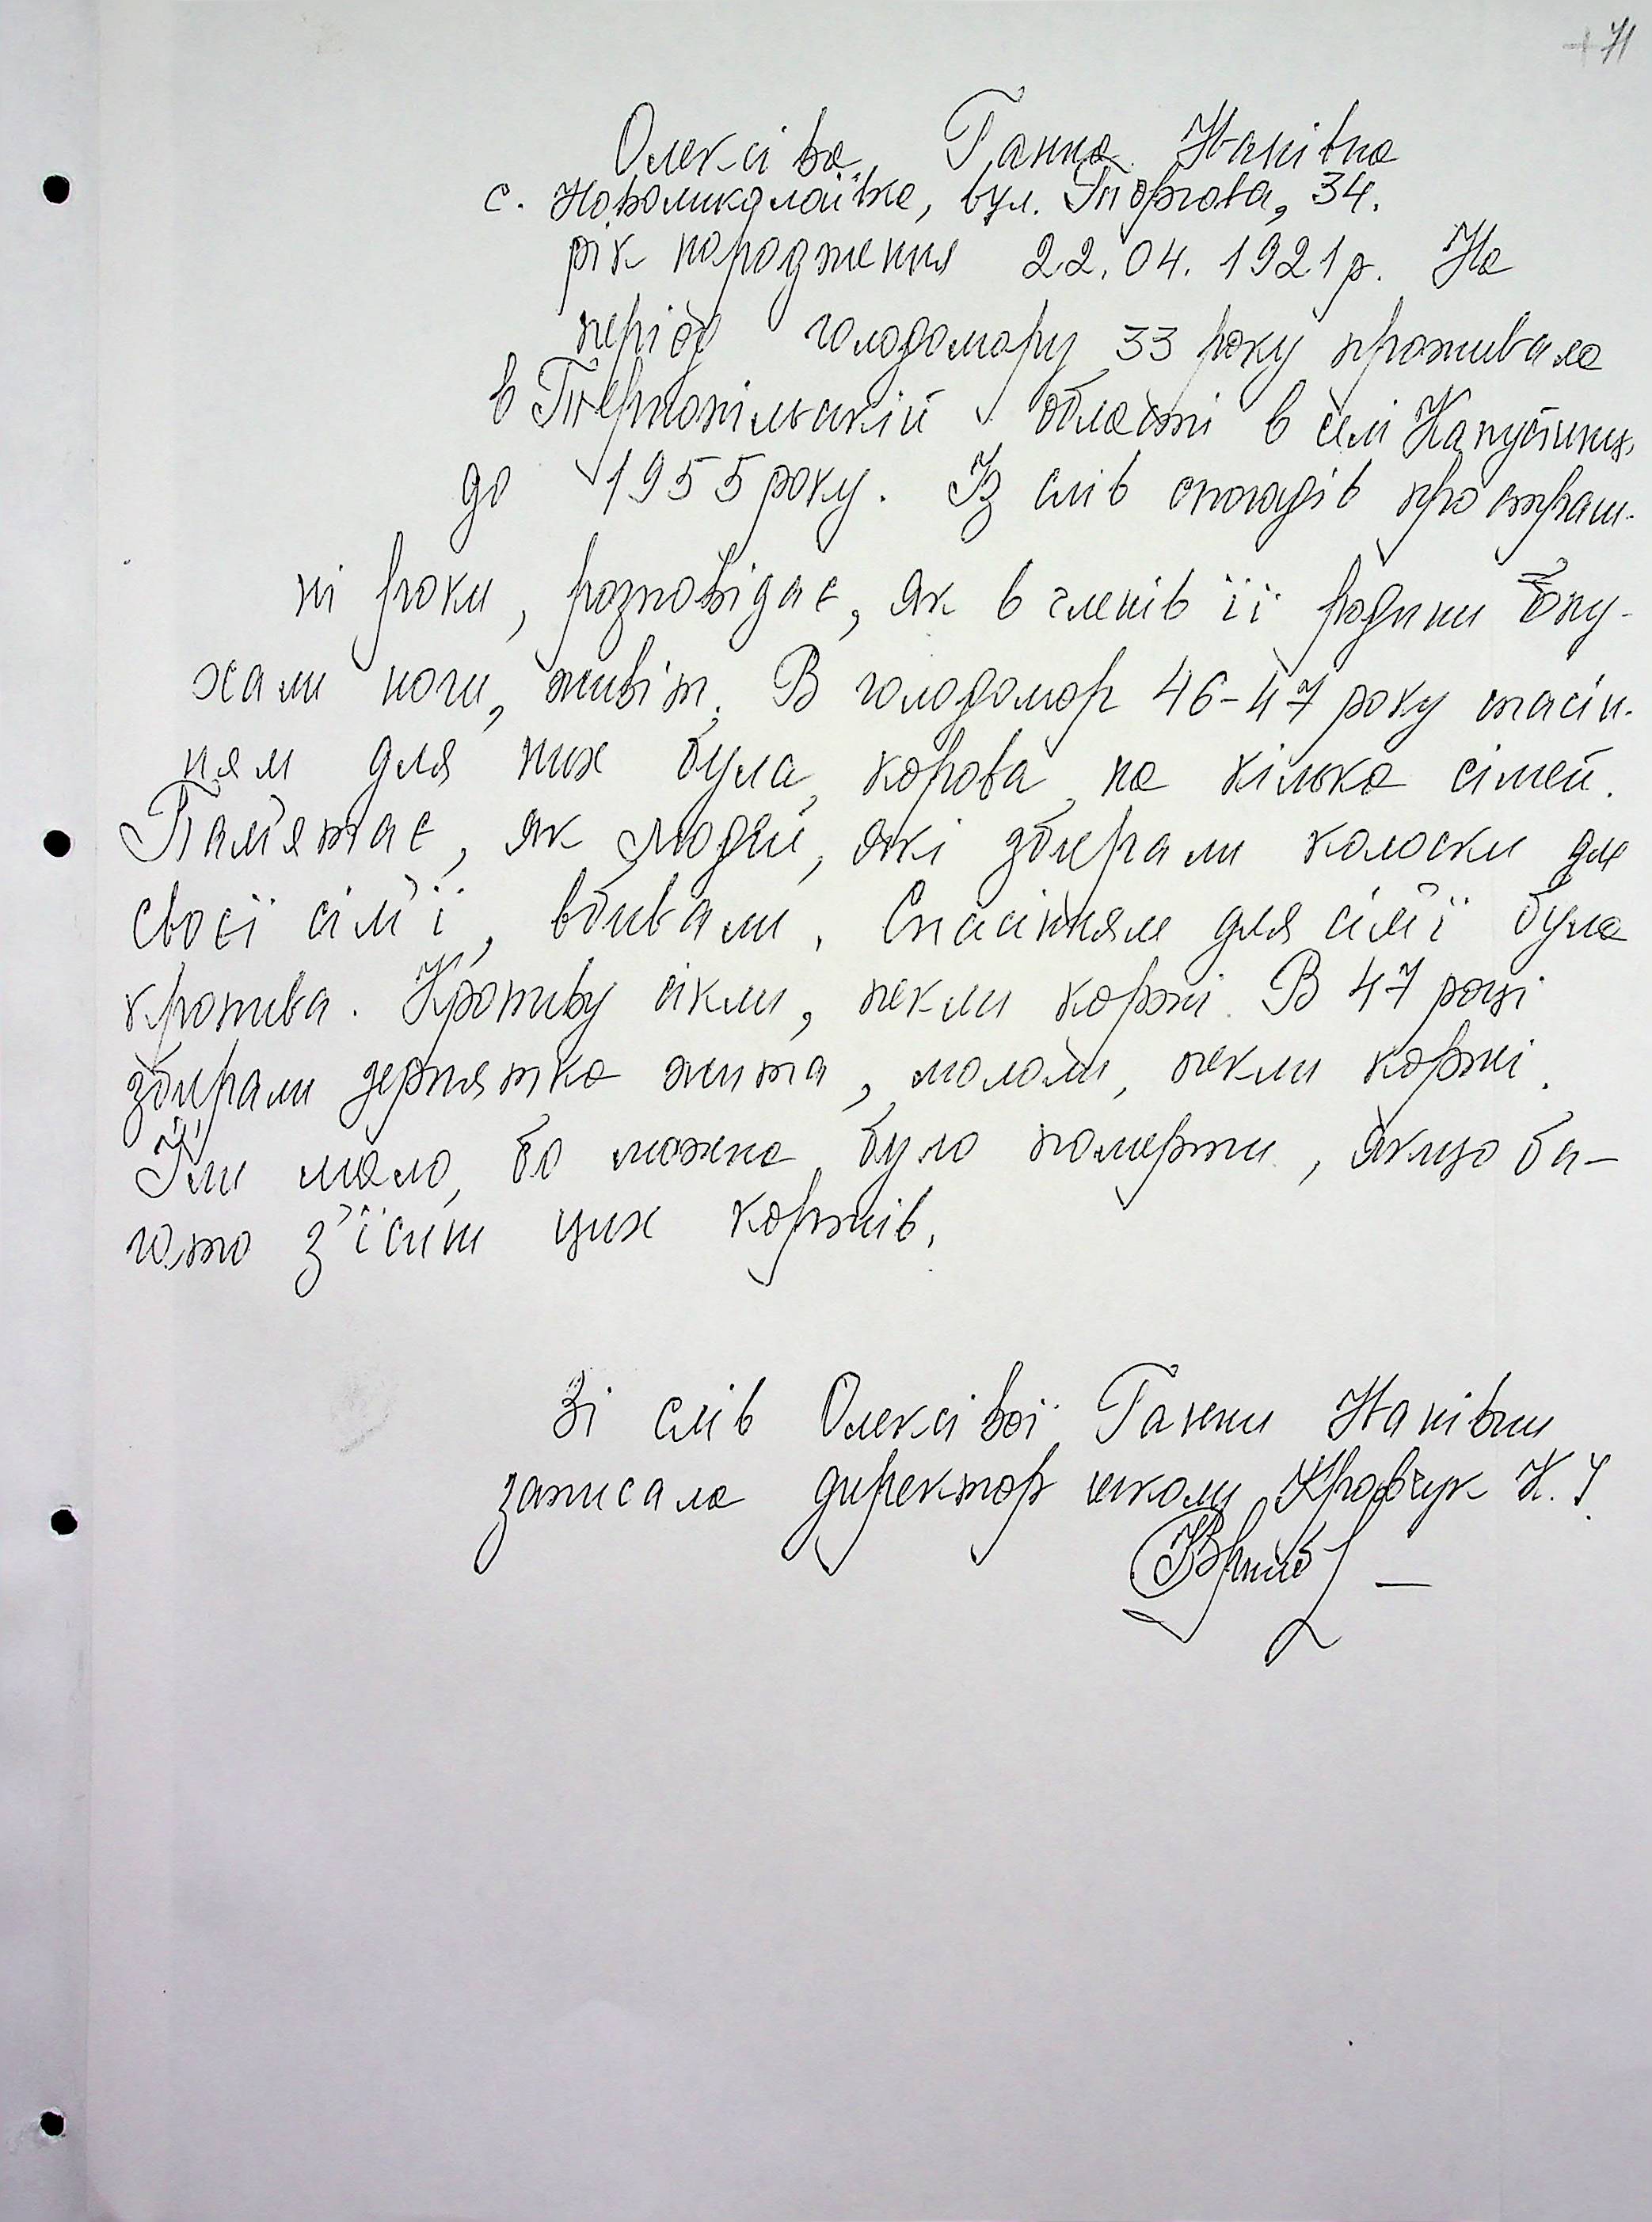 71
Олексіва Ганна Іванівна
с. Новомиколаївка, вул. Торгова, 34.
рік народження 22.04.1921 р. На
період голодомору 33 року проживала
в Тернопільській області в селі Капустинцях
до 1955 року. Із слів спогадів про страш-
ні роки, розповідає, як в членів її родини опу-
хали ноги, живіт. В голодомор 46-47 року спасін-
ням для них була корова на кілька сімей.
Пам'ятає, як людей, які збирали колоски для
своєї сім'ї, вбивали. Спасінням для сім'ї була
кропива. Кропиву сікли, пекли коржі. В 47 році
збирали зернятка жита, мололи, пекли коржі.
Їли мало, бо можна було померти, якщо ба-
гато з'їсти цих коржів.
Зі слів Олексівої Ганни Іванівни
записала директор школи Кравчук Н. І.